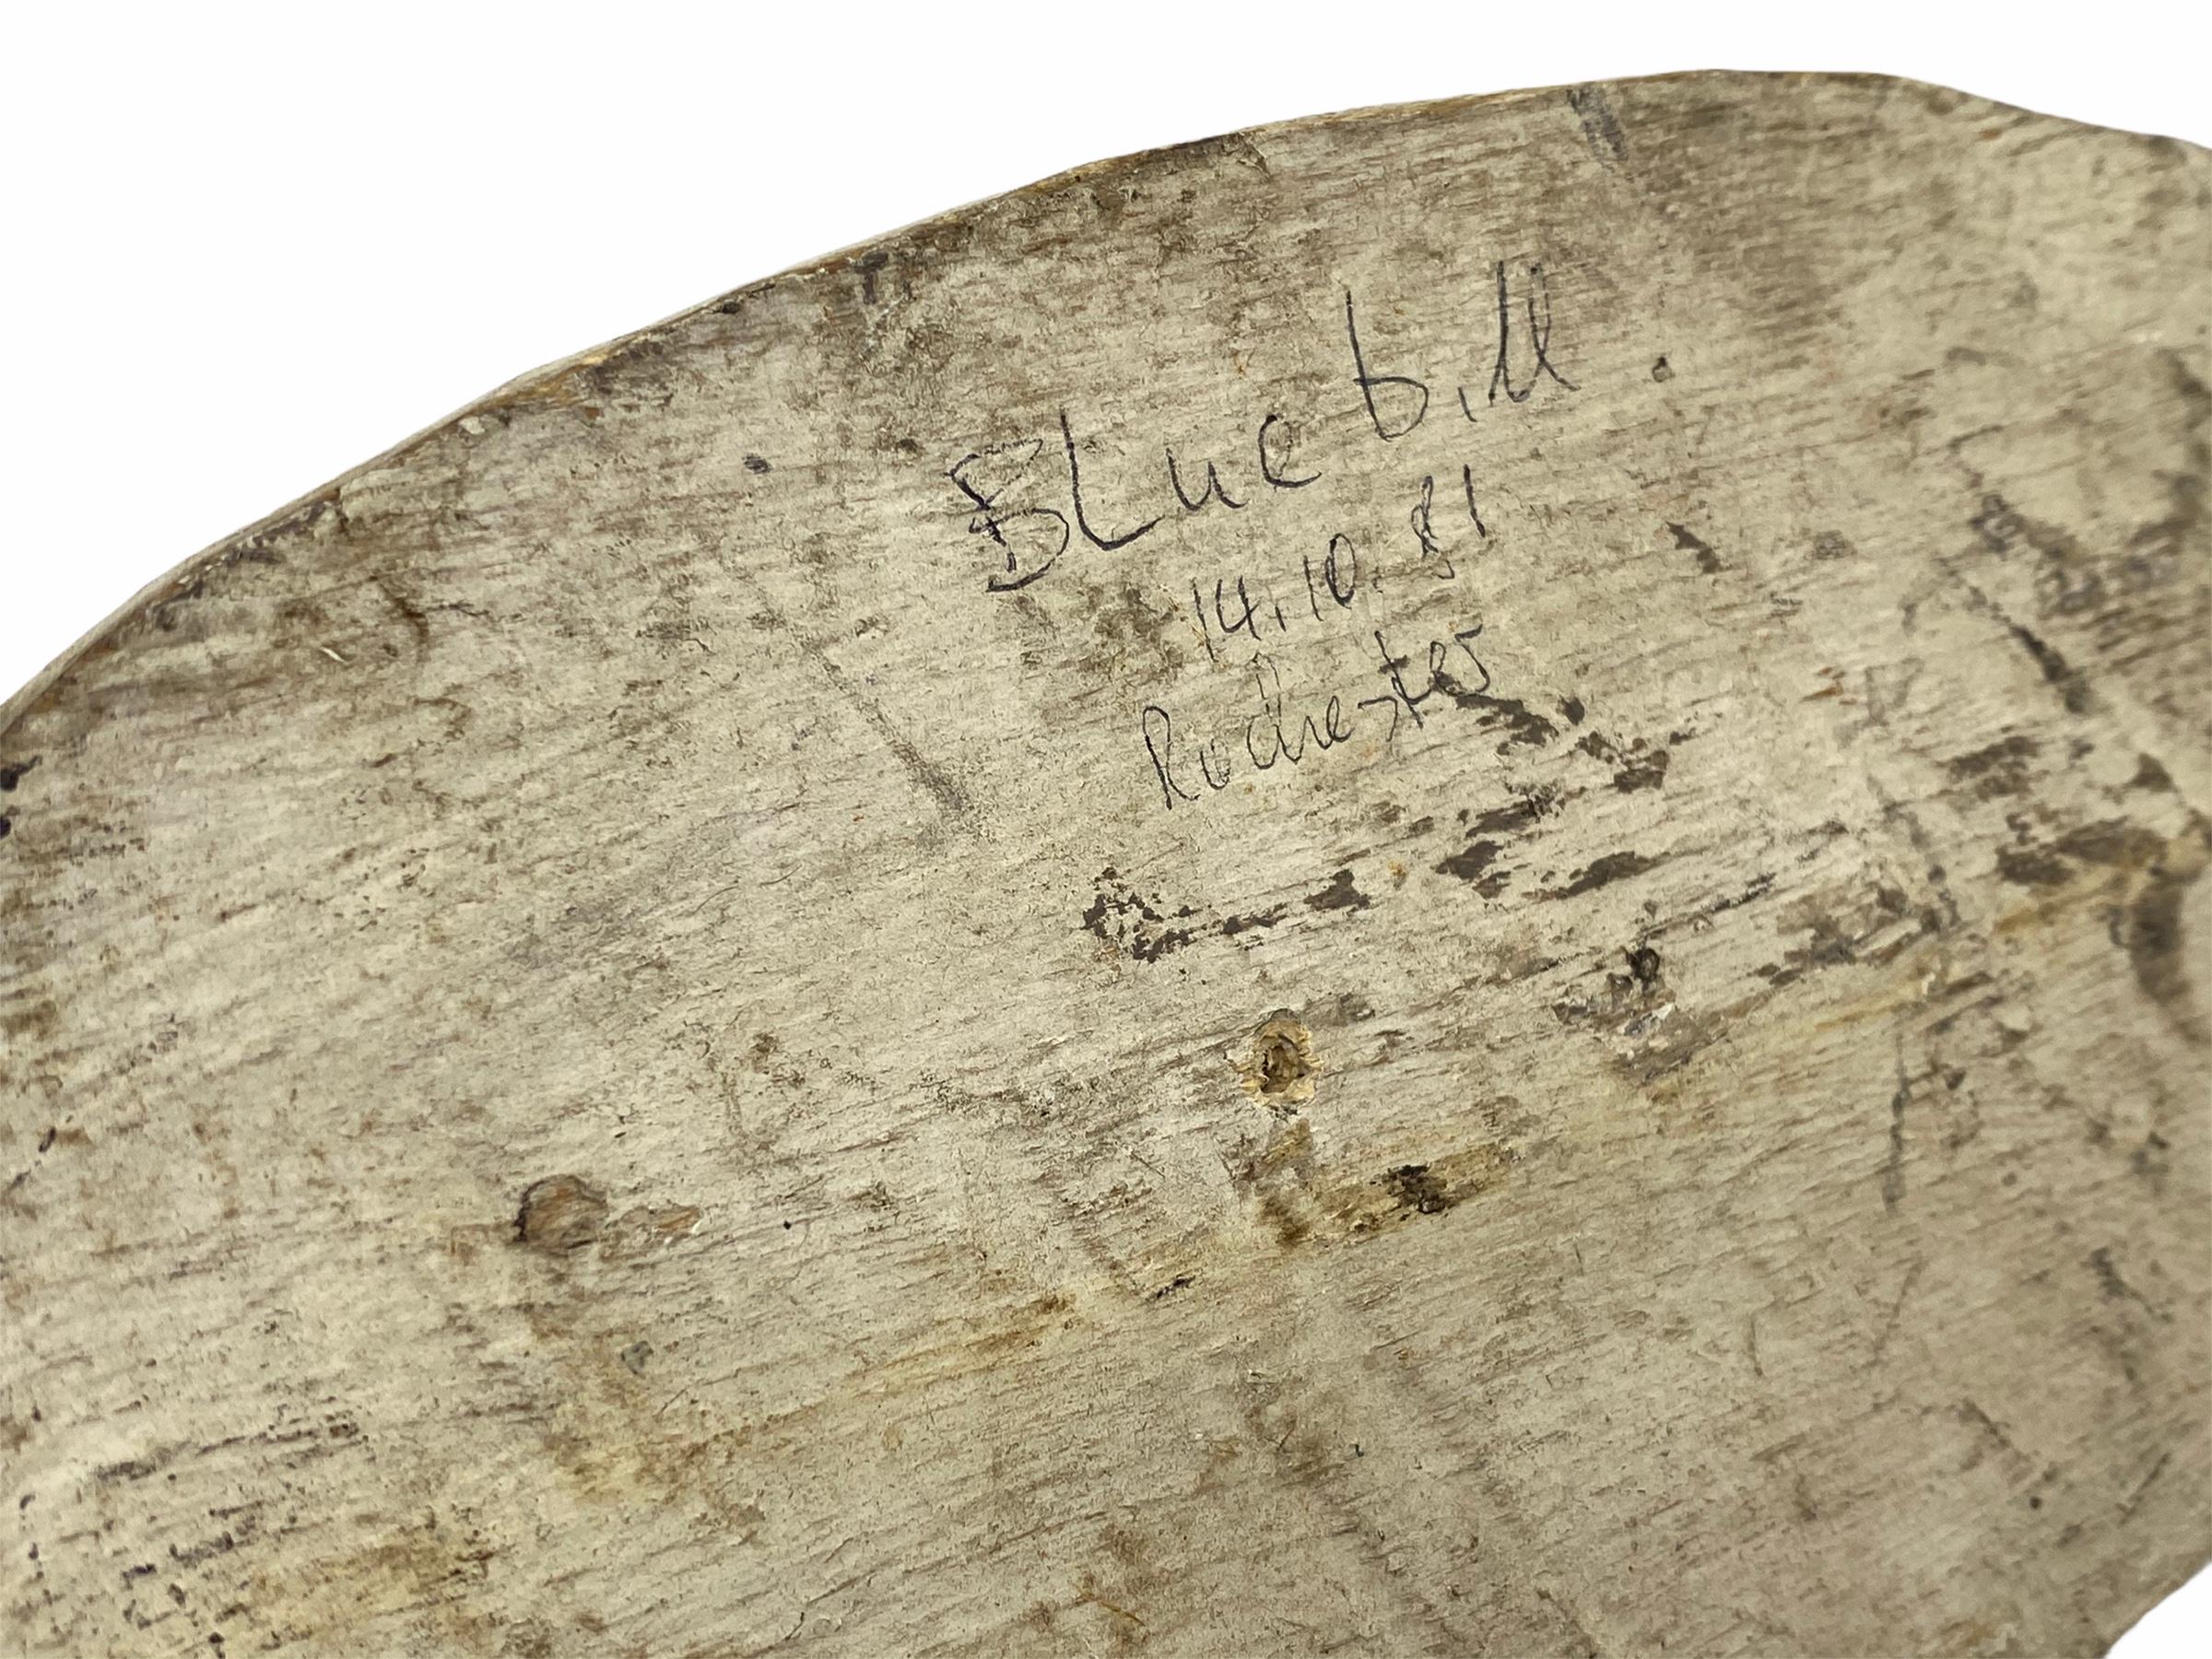 BLue bill
14.10.81
Rochester